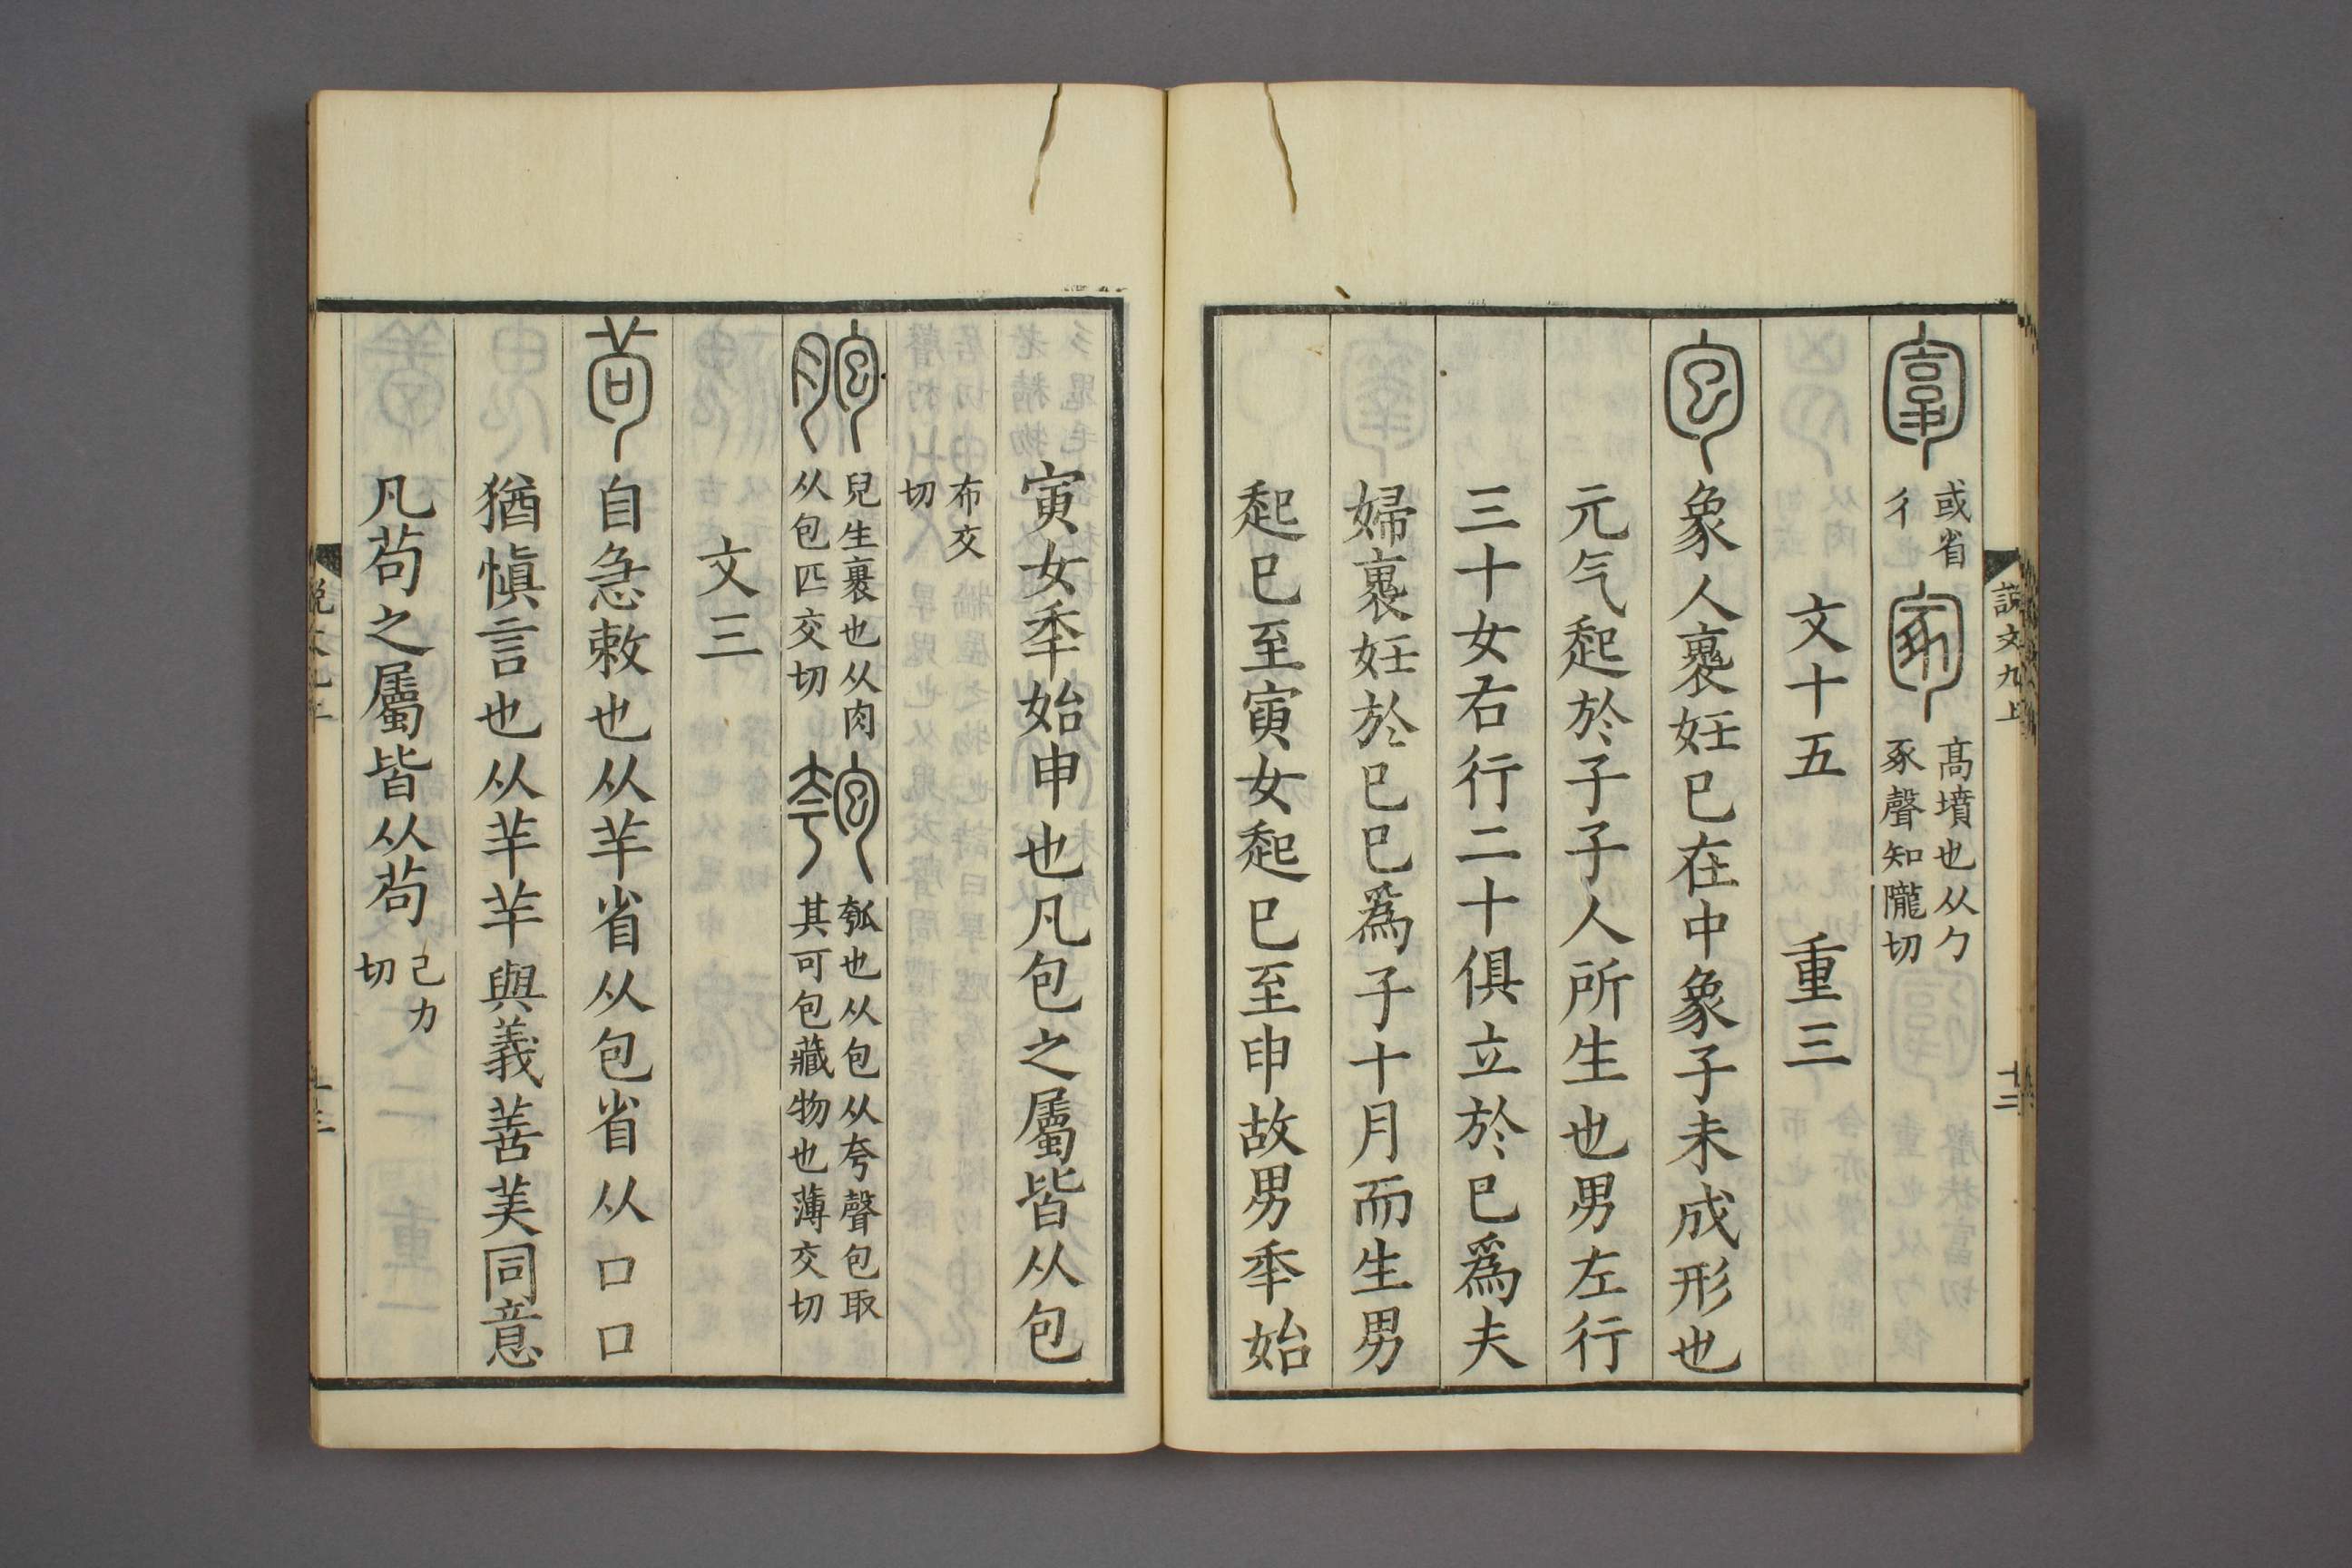 說文九上
十二
或省彳
冢
高墳也从勹豖聲知隴切
文十五 重三
包 象人裹妊巳在中象子未成形也
元气起於子子人所生也男左行
三十女右行二十俱立於巳爲夫
婦裹妊於巳巳爲子十月而生男
起巳至寅女起巳至申故男秊始
寅女秊始申也凡包之屬皆从包
布交切
胞 兒生裹也从肉从包匹交切
匏 瓠也从包从夸聲包取其可包藏物也薄交切
文三
茍 自急敕也从羊省从包省从口口
猶愼言也从羊羊與義善美同意
凡茍之屬皆从茍 己力切